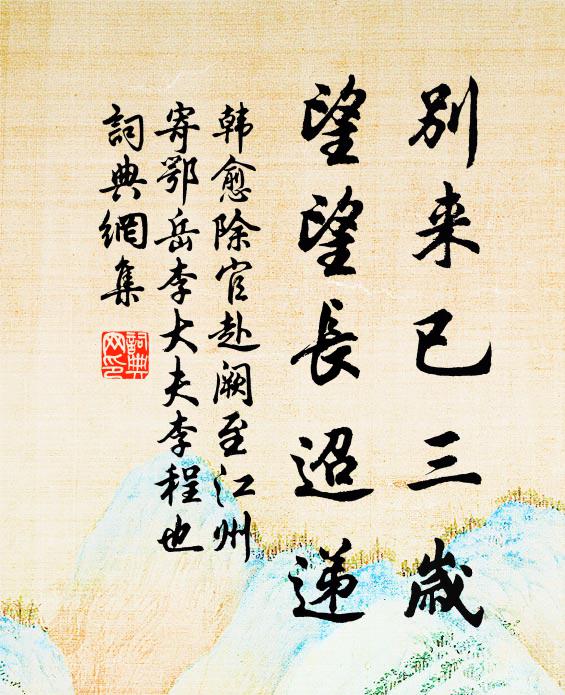 別来已三歳
望望長迢递
韩愈除官赴阙至江州
寄鄂岳李大夫李程也
詞典網集
詞典网印